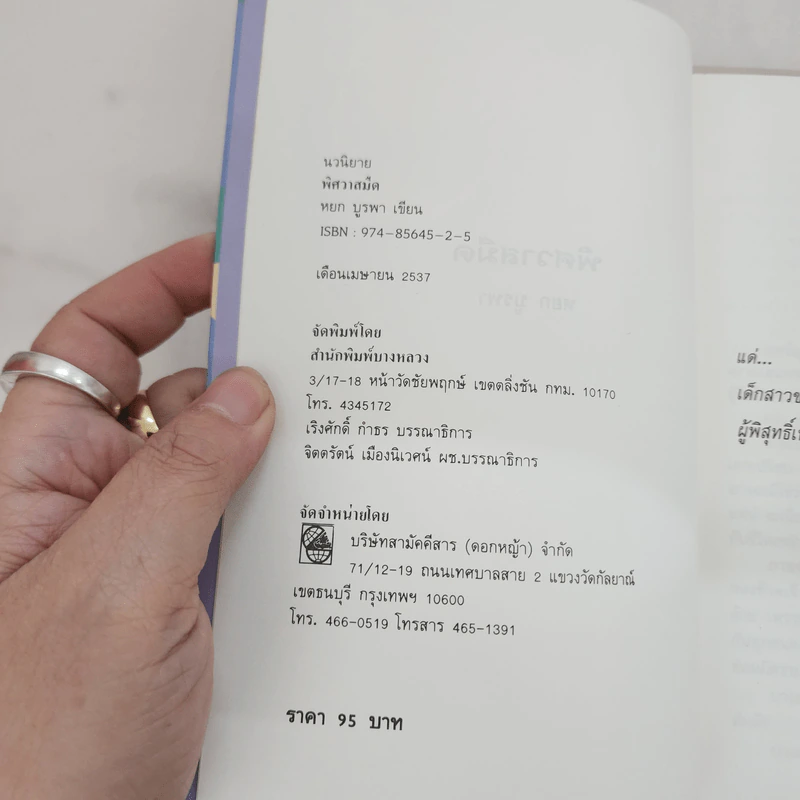 นวนิยาย
พิศวาสมืด
หยก บูรพา เขียน
ISBN : 974-85645-2-5
เดือนเมษายน 2537
จัดพิมพ์โดย
สำนักพิมพ์บางหลวง
3/17-18 หน้าวัดชัยพฤกษ์ เขตตลิ่งชัน กทม. 10170
โทร. 4345172
เริงศักดิ์ กำธร บรรณาธิการ
จิตตรัตน์ เมืองนิเวศน์ ผช.บรรณาธิการ
จัดจำหน่ายโดย
บริษัทสามัคคีสาร (ดอกหญ้า) จำกัด
71/12-19 ถนนเทศบาลสาย 2 แขวงวัดกัลยาณ์
เขตธนบุรี กรุงเทพฯ 10600
โทร. 466-0519 โทรสาร 465-1391
ราคา 95 บาท
แด่...
เด็กสาว
ผู้พิสุทธิ์